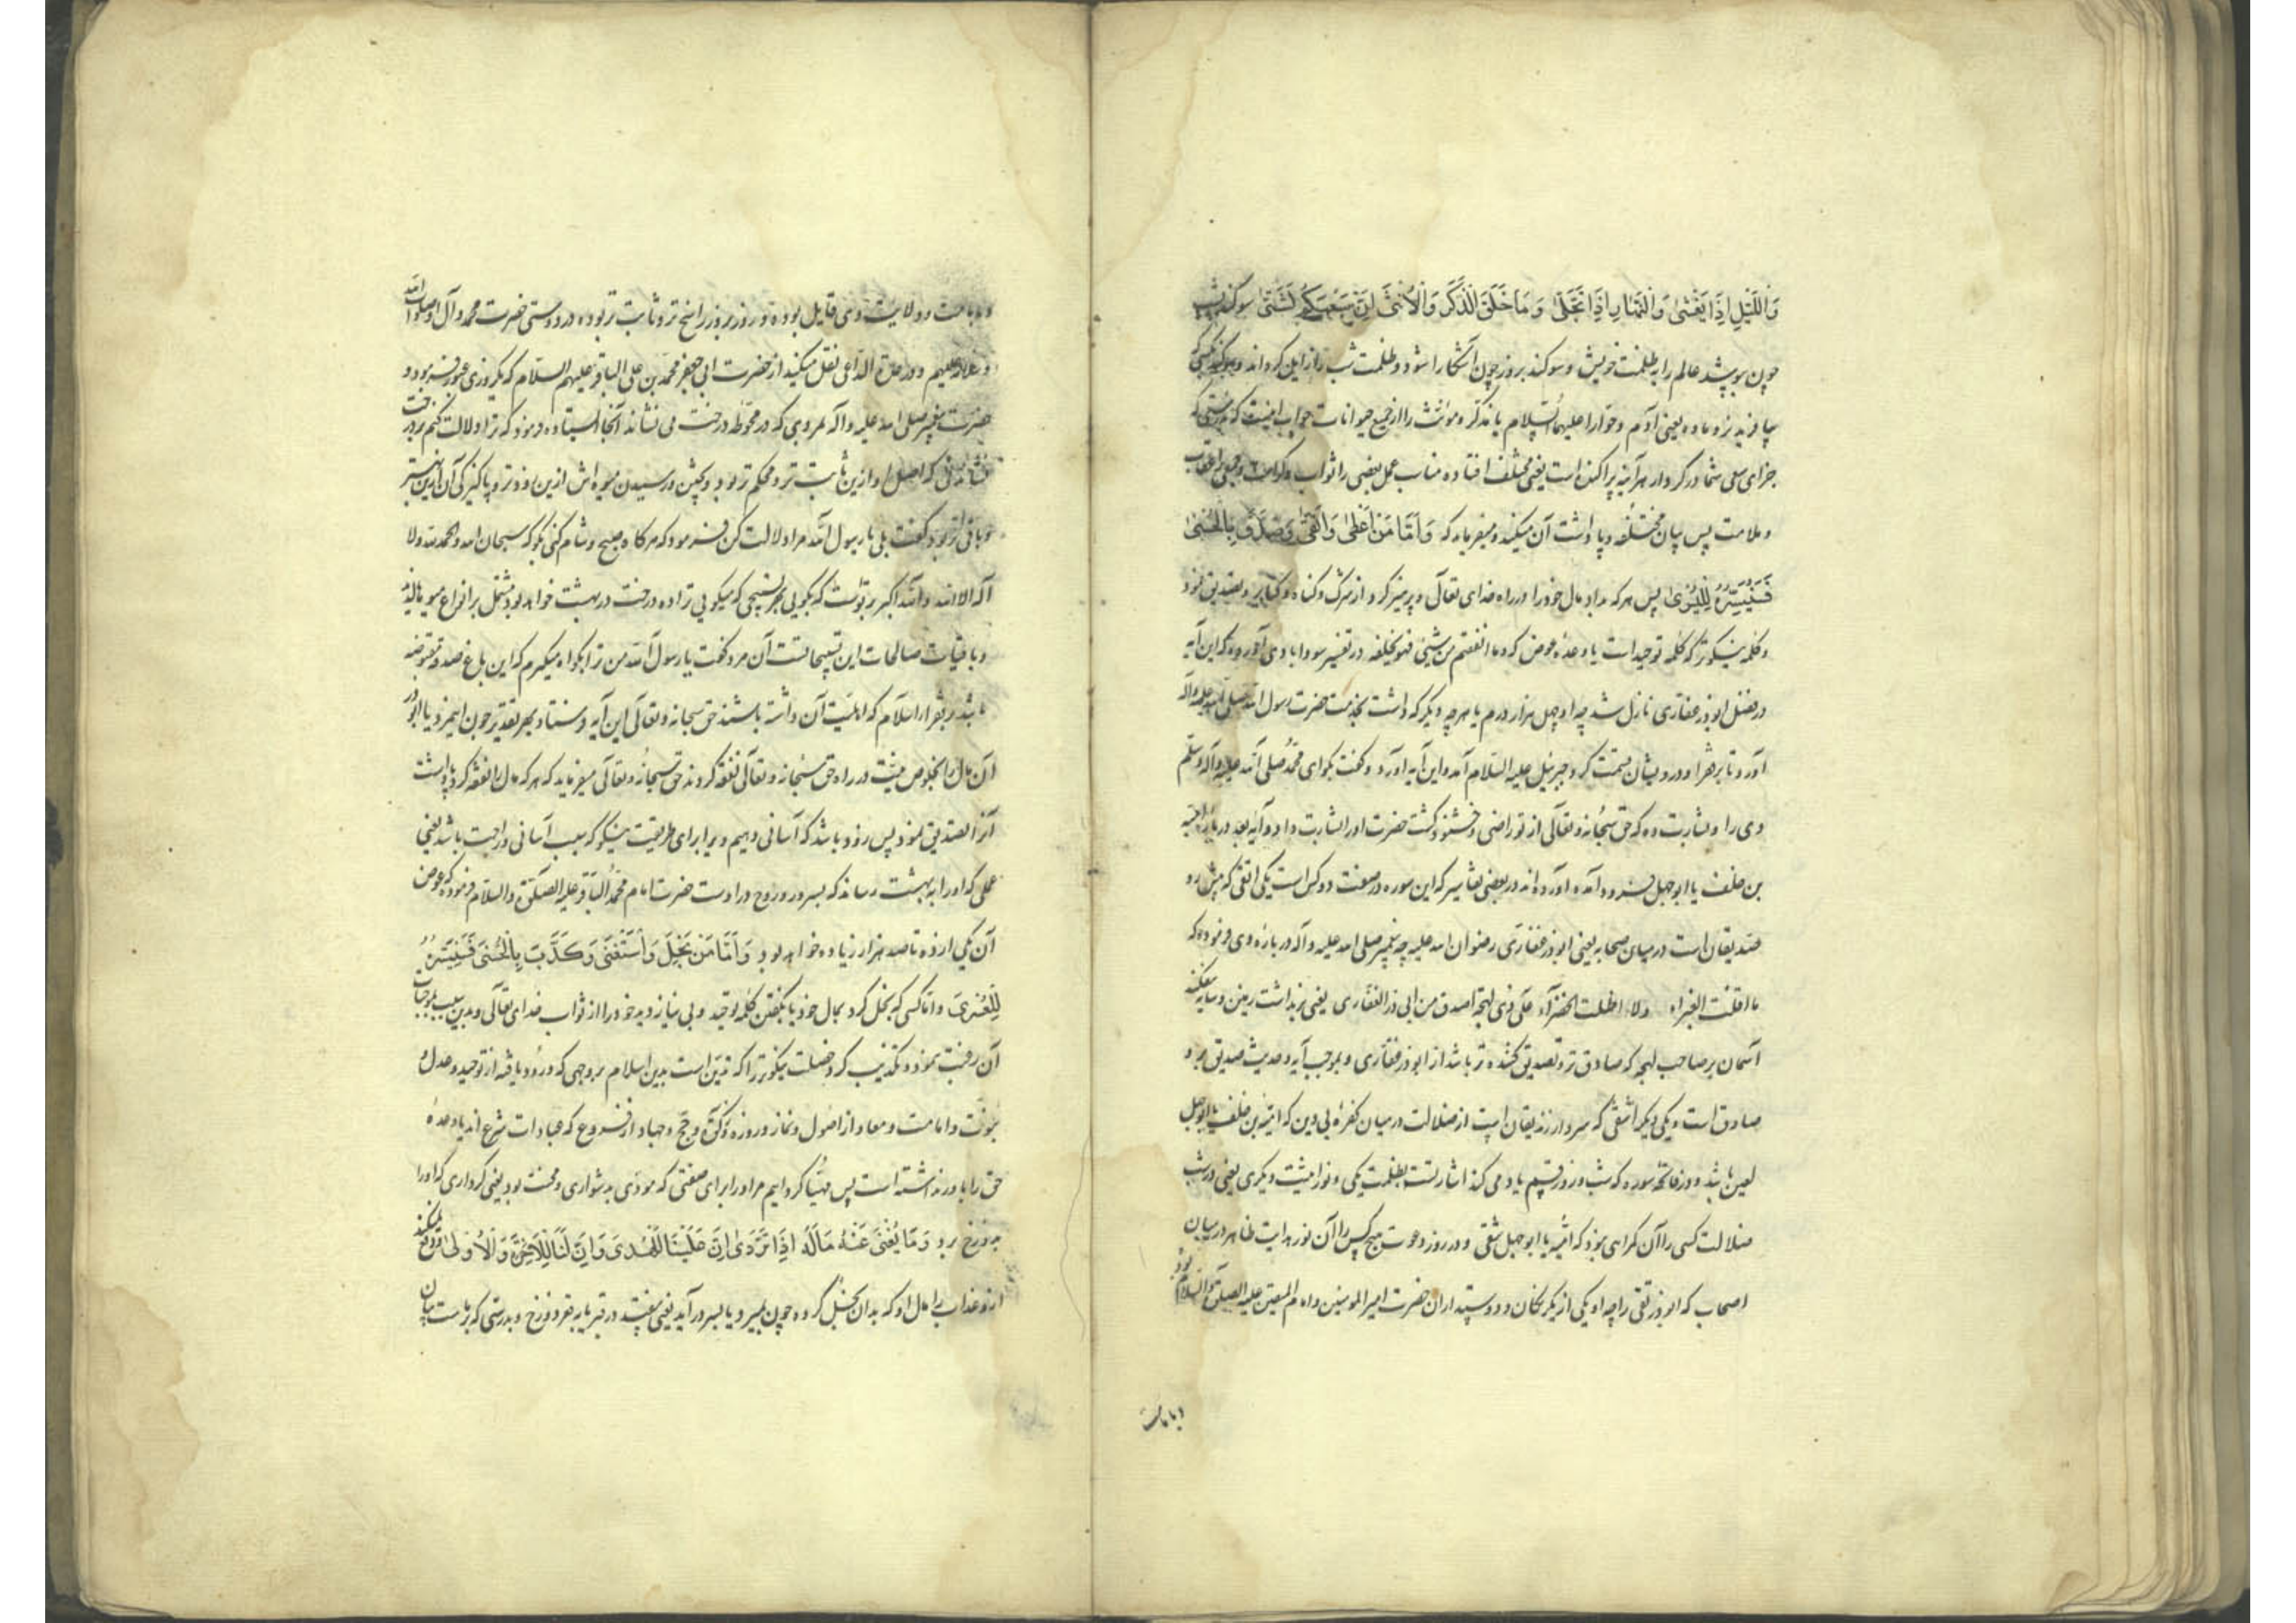 وَاللَّيْلِ اِذَا يَغْشٰى وَالنَّهَارِ اِذَا تَجَلّٰى وَ مَا خَلَقَ الذَّكَرَ وَالْاُنْثٰى اِنَّ سَعْيَكُمْ لَشَتّٰى سوکند بشب
چون بپوشد عالم را بظلمت خویش و سوکند بروز چون آشکارا شود و ظلمت شب را زایل کرداند و سوکند بکسی که
بیافرید نر و ماده یعنی آدم و حوّا را علیهما السّلام یا مذکر و مونث را از جمیع حیوانات جواب اینست که بدرستی که
جزای سعی شما در کردار هرآینه پراکنده است یعنی مختلف افتاده مناسب عمل بعضی را ثواب و کرامت و بعضی را عقاب
و ملامت پس بیان مختلفه و پاداشت آن میکند و میفرماید که وَاَمَّا مَنْ اَعْطٰى وَاتَّقٰى وَصَدَّقَ بِالْحُسْنٰى
فَسَنُيَسِّرُهُ لِلْيُسْرٰى پس هر که بداد مال خود را در راه خدای تعالی و پرهیز کرد از شرک و گناه و کبایر و تصدیق نمود
و کلمه نیکوتر که کلمه توحید است یا وعده عوض که و ما انفقتم من شیئی فهو یخلفه در تفسیر سودابادی آورده که این آیه
در فضل ابوذر غفاری نازل شد چه او چهل هزار درم یا هرچه دیگر که داشت بخدمت حضرت رسول الله صلی الله علیه وآله
آورد تا بر فقرا و درویشان قسمت کرد جبرئیل علیه السّلام آمد و این آیه آورد و گفت بگو ای محمّد صلی الله علیه وآله وسلم
وی را و بشارت ده که حق سبحانه و تعالی از تو راضی و خشنود گشت حضرت او را بشارت داد و آیه بعد در باره امیه
بن خلف یا ابوجهل فرود آمده آورده اند در بعضی تفاسیر که این سوره در صفت دو کس است یکی اتقی که پیش رو
صدیقان است در میان صحابه یعنی ابوذر غفاری رضوان الله علیه چه پیغمبر صلی الله علیه وآله در باره وی فرموده که
ما اقلّت الغبراء ولا اظلّت الخضرآء علی ذی لهجة اصدق من ابی ذر الغفاری یعنی برنداشت زمین و سایه نیفکند
آسمان بر صاحب لهجه که صادق تر و تصدیق کننده تر باشد از ابوذر غفاری و بموجب آیه و حدیث صدیق بر و
صادق است و یکی دیگر اشقی که سردار زندیقان است از ضلالت در میان کفره بی دین که امیة بن خلف یا ابوجهل
لعین باشد و در فاتحه سوره که شب و روز قسم یاد می کند اشارتست بظلمت یکی و نورانیت دیگری یعنی در شب
ضلالت کسی را آن گمراهی نبود که امیه یا ابوجهل شقی و در روز دعوت هیچ کس را آن نور هدایت ظاهر در میان
اصحاب که ابوذر تقی را چه او یکی از یکرنگان و دوستداران حضرت امیرالمومنین و امام المتقین علیه الصلوة والسلام بود
و بامامت
و بامامت و ولایت وی قایل بوده و روز بروز راسخ تر و ثابت تر بوده در دوستی حضرت محمد وآل او صلوات الله
علیهم و در عدة الداعی نقل میکنید از حضرت ابی جعفر محمّد بن علی الباقر علیهم السّلام که یک روزی عبور فرمود و
حضرت پیغمبر صلی الله علیه وآله بمردی که در محوطه درخت می نشاند آنجا ایستاد و فرمود که ترا دلالت کنم بر درخت
نشاندنی که اصل او ازین ثابت تر و محکم تر بود و پختن و رسیدن میوه اش ازین زودتر و پاکیزگی آن ازین بهتر
و باقی تر بود گفت بلی یا رسول الله مرا دلالت کن فرمود که هرگاه صبح و شام کنی بگو که سبحان الله والحمد لله ولا
اله الا الله والله اکبر بر تواست که بگویی بهر تسبیحی که میگویی ترا ده درخت در بهشت خواهد بود مشتمل بر انواع میوه
و باقیات صالحات این تسبیحاتست آن مرد گفت یا رسول الله من ترا بگواه میگیرم که این باغ صدقه مقبوضه
باشد بر فقرا اسلام که اهلیت آن داشته باشند حق سبحانه وتعالی این آیه فرستاد و بهر تقدیر چون این مرد یا ابوذر
آن مال را بخلوص نیّت در راه حق سبحانه وتعالی نفقه کردند حق سبحانه وتعالی میفرماید که هرکه مال را نفقه کرد و پاداشت
آنرا تصدیق نمود پس زود باشد که آسانی دهیم ویرا برای طریقت نیکو که سبب آسانی و راحت باشد یعنی
عملی که او را به بهشت رساند که بسرور و روح در اوست حضرت امام محمّد الباقر علیه الصلوة والسلام فرموده که عوض
آن یکی از ده تا صد هزار زیاده خواهد بود وَاَمَّا مَنْ بَخِلَ وَاسْتَغْنٰى وَكَذَّبَ بِالْحُسْنٰى فَسَنُيَسِّرُهُ
لِلْعُسْرٰى و اما کسی که بخل کرد بمال خود یا بگفتن کلمه توحید و بی نیاز دید خود را از ثواب خدای تعالی و بدین سبب بموجبات
آن رغبت ننمود و تکذیب کرد خصلت نیکوتر را که تدین است بدین اسلام بر وجهی که ورود یافته از توحید و عدل و
نبوّت و امامت و معاد از اصول و نماز و روزه و زکوة و حجّ و جهاد از فروع که عبادات شرع اند یا وعده
حق را باور نداشته است پس مهیّا کرد ایم مر او را برای صفتی که مودی بدشواری و محنت بود یعنی کرداری که او را
بدوزخ برد وَ مَا يُغْنٖى عَنْهُ مَالُهُ اِذَا تَرَدّٰى اِنَّ عَلَيْنَا لَلْهُدٰى وَاِنَّ لَنَا لَلْاٰخِرَةَ وَالْاُولٰى و دفع نمیکند
ازو عذاب را مال او که بدان بخل کرده چون بمیرد یا بسر درآید یعنی بیفتد در قبر یا به قعر دوزخ و بدرستی که بر ماست بیان